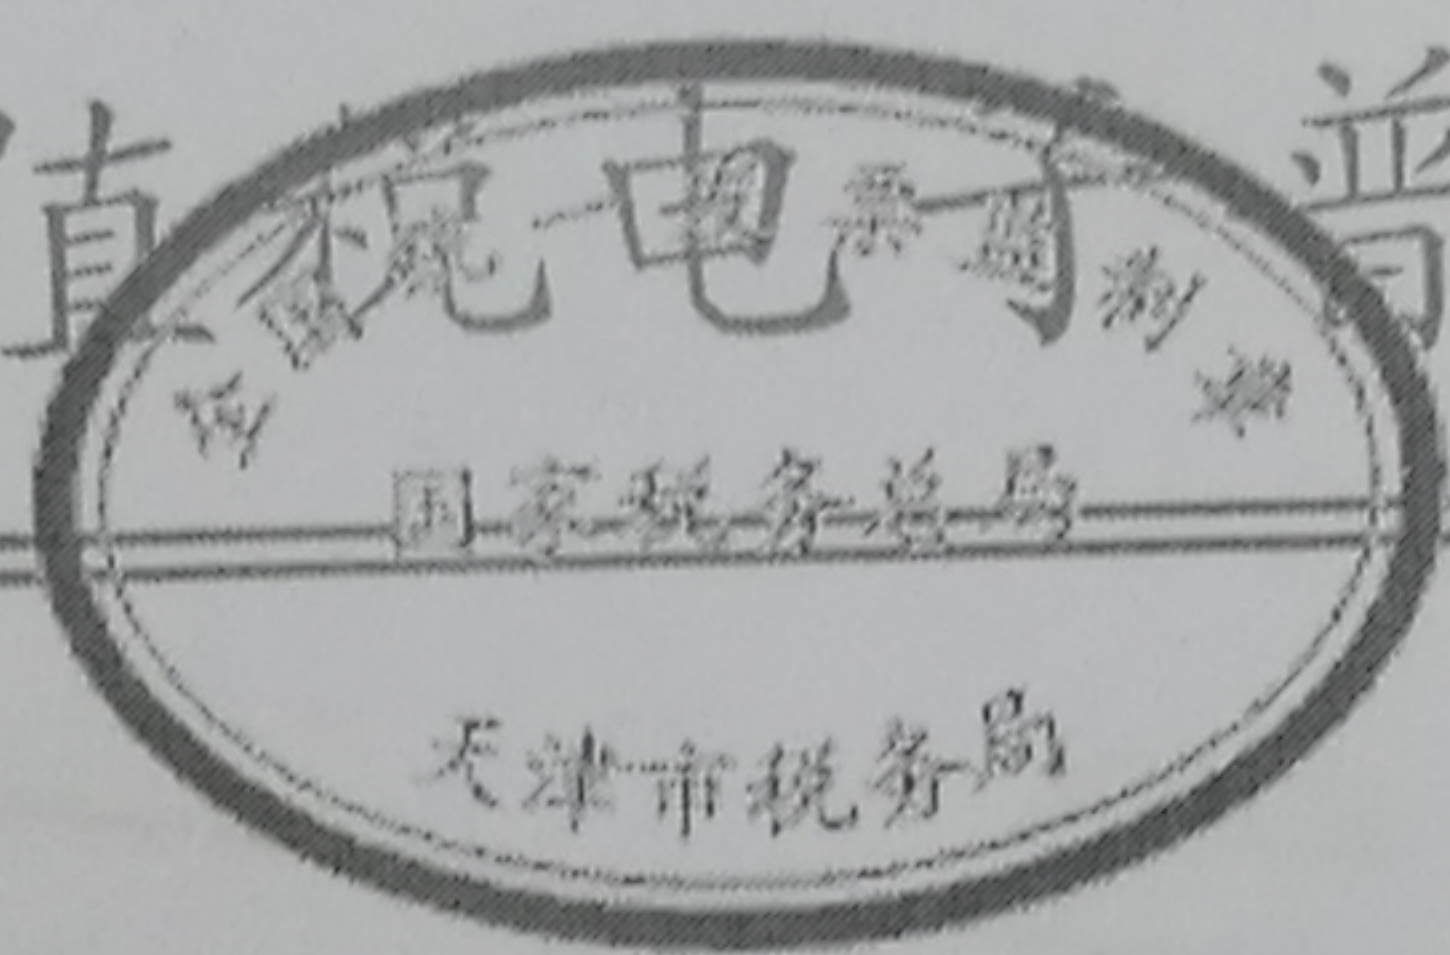 值税电子普
全国统一发票监制章
国家税务总局
天津市税务局